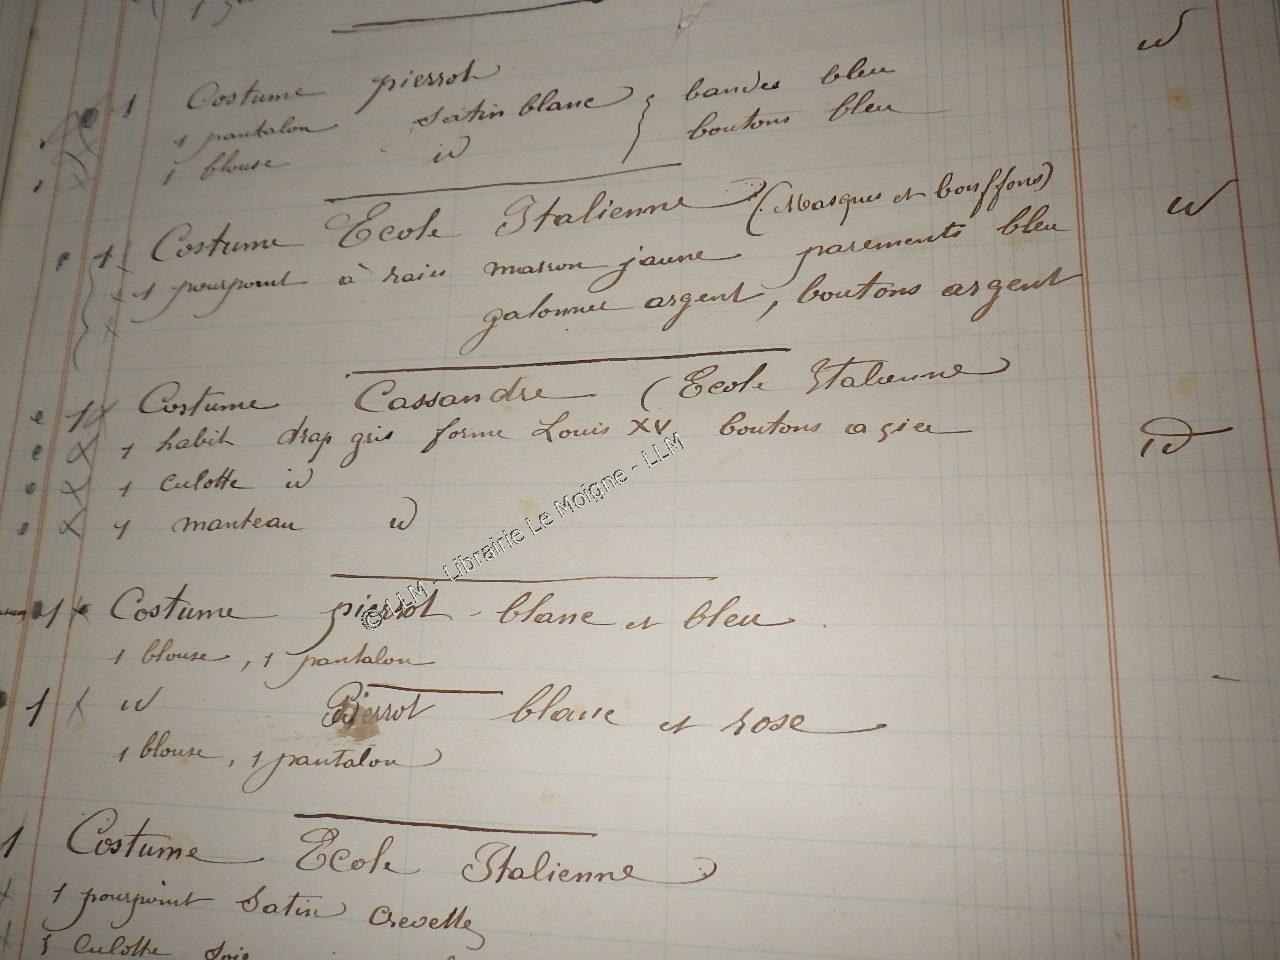 1 Costume pierrot id
1 pantalon satin blanc } bandes bleu
1 blouse id boutons bleu
1 Costume Ecole Italienne (Masques et bouffons) id
1 pourpoint à raies marron jaune parements bleu
galonné argent, boutons argent
1 Costume Cassandre (Ecole Italienne
1 habit drap gris forme Louis XV boutons acier id
1 culotte id
1 manteau id
1 Costume pierrot - blanc et bleu
1 blouse, 1 pantalon
1 id Pierrot blanc et rose
1 blouse, 1 pantalon
1 Costume Ecole Italienne
1 pourpoint Satin Crevette
1 Culotte Soie
© LLM - Librairie Le Moigne - LLM